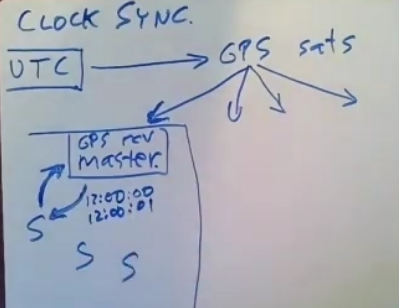 CLOCK SYNC.
UTC
GPS sats
GPS rcv
Master.
12:00:00
12:00:01
S
S
S